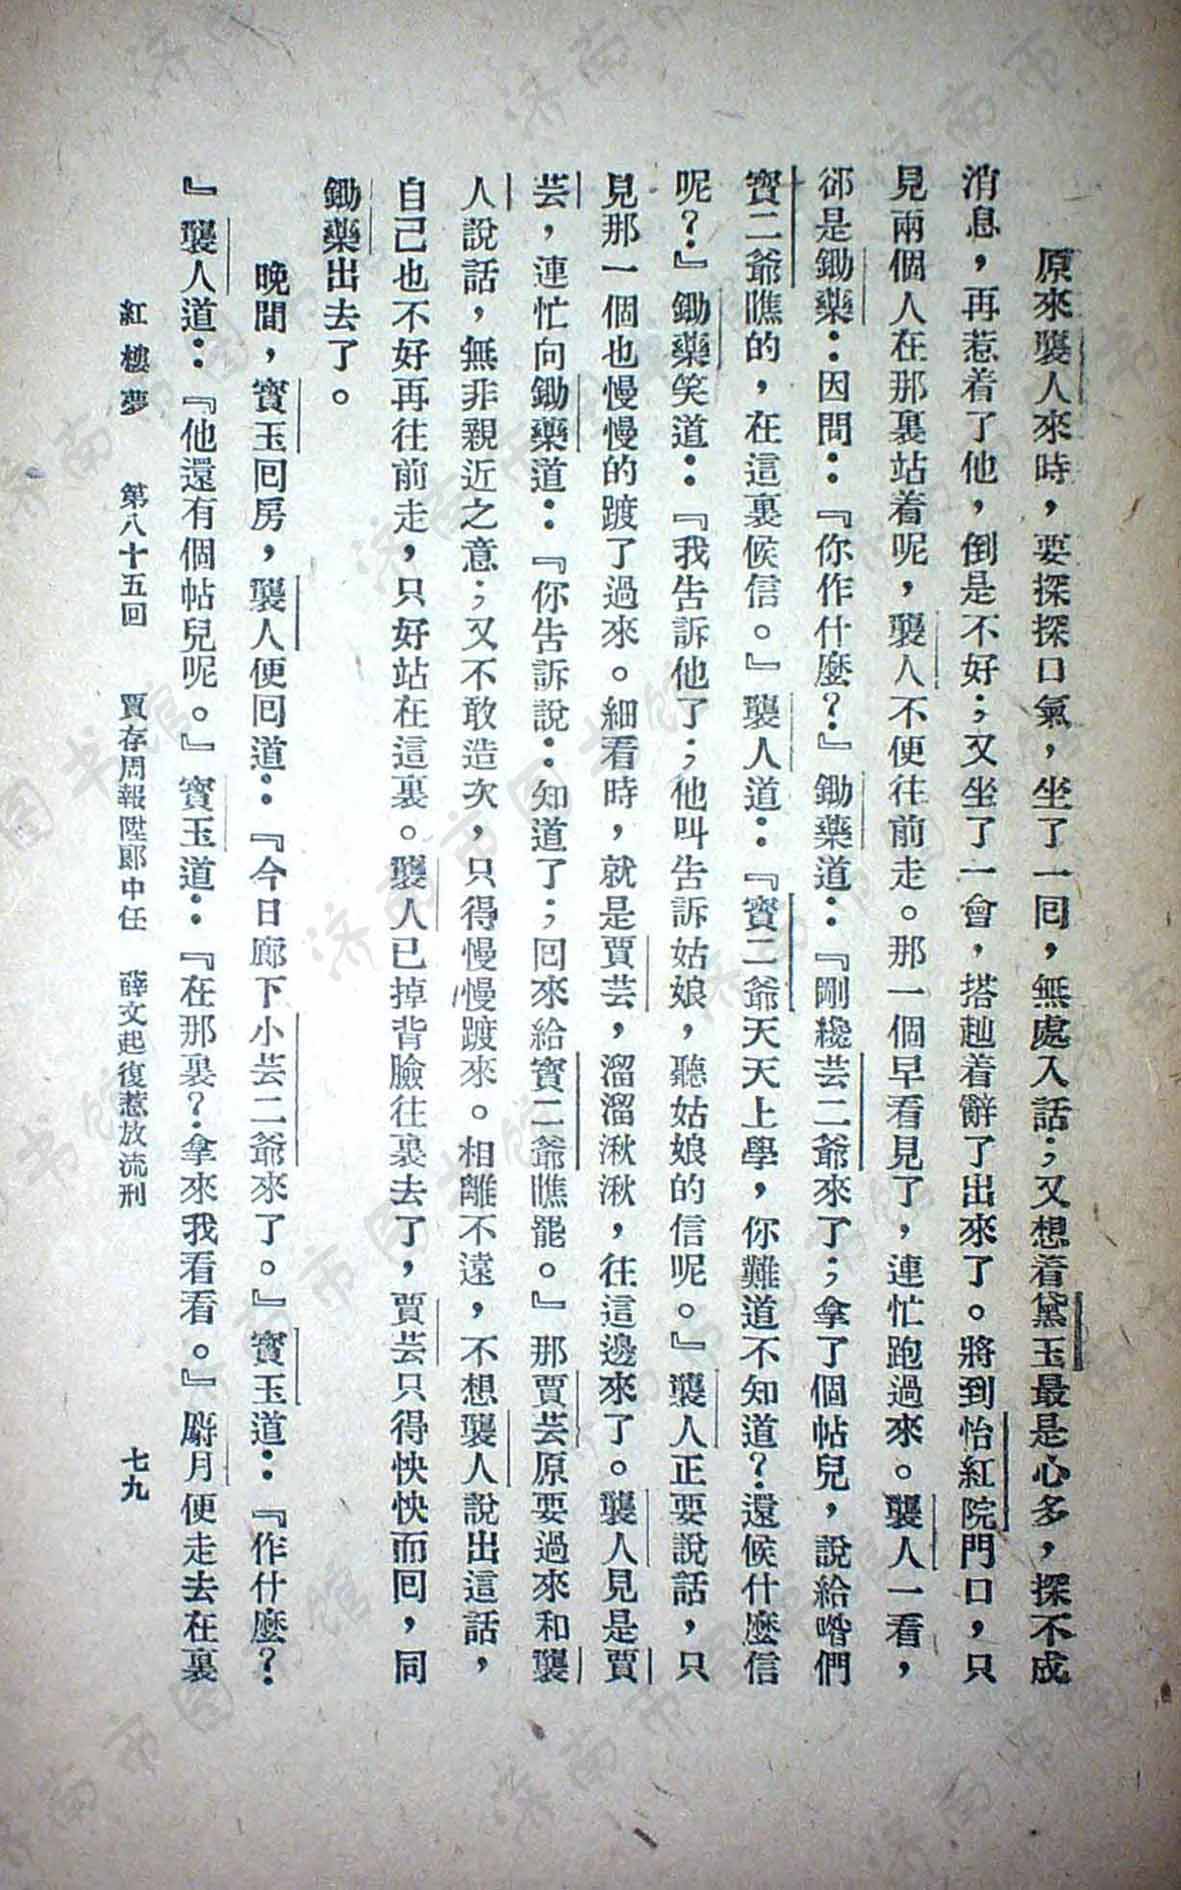 原來襲人來時，要探探口氣，坐了一囘，無處入話；又想着黛玉最是心多，探不成
消息，再惹着了他，倒是不好；又坐了一會，搭趟着辭了出來了。將到怡紅院門口，只
見兩個人在那裏站着呢，襲人不便往前走。那一個早看見了，連忙跑過來。襲人一看，
卻是鋤藥：因問：『你作什麼？』鋤藥道：『剛纔芸二爺來了；拿了個帖兒，說給喒們
寶二爺瞧的，在這裏候信。』襲人道：『寶二爺天天上學，你難道不知道？還候什麼信
呢？』鋤藥笑道：『我告訴他了；他叫告訴姑娘，聽姑娘的信呢。』襲人正要說話，只
見那一個也慢慢的踱了過來。細看時，就是賈芸，溜溜湫湫，往這邊來了。襲人見是賈
芸，連忙向鋤藥道：『你告訴說：知道了；囘來給寶二爺瞧罷。』那賈芸原要過來和襲
人說話，無非親近之意；又不敢造次，只得慢慢踱來。相離不遠，不想襲人說出這話，
自己也不好再往前走，只好站在這裏。襲人已掉背臉往裏去了，賈芸只得怏怏而囘，同
鋤藥出去了。
晚間，寶玉囘房，襲人便囘道：『今日廊下小芸二爺來了。』寶玉道：『作什麼？
』襲人道：『他還有個帖兒呢。』寶玉道：『在那裏？拿來我看看。』麝月便走去在裏
紅樓夢　第八十五回　賈存周報陞郎中任　薛文起復惹放流刑　七九
济南市图书馆